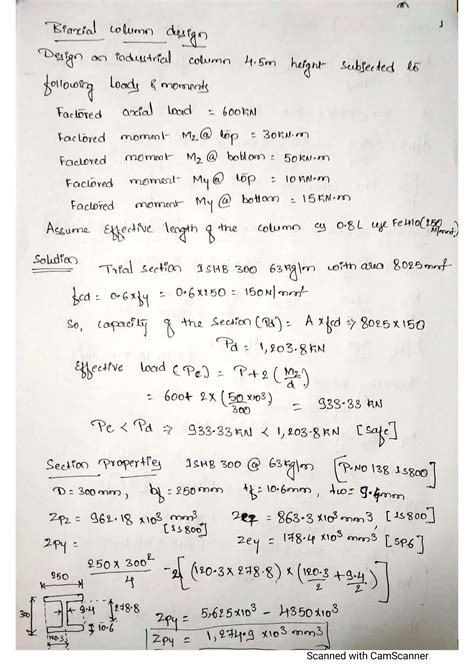 1
Biaxial column design
Design an industrial column 4.5m height subjected to
following loads & moments
Factored axial load = 600KN
Factored moment Mz @ top = 30KN.m
Factored moment Mz @ bottom = 50KN.m
Factored moment My @ top = 10KN.m
Factored moment My @ bottom = 15KN.m
Assume Effective length of the column as 0.8L use Fe410 (250 N/mm²)
Solution Trial section ISHB 300 63kg/m with area 8025mm²
fcd = 0.6xfy = 0.6x250 = 150N/mm²
So, capacity of the section (Pd) = A x fcd => 8025x150
Pd = 1,203.8KN
Effective load (Pe) = P+2(Mz/d)
= 600+ 2x(50x10³/300) = 933.33 KN
Pe < Pd => 933.33KN < 1,203.8KN [Safe]
Section Properties ISHB 300 @ 63kg/m [P.NO 138 IS800]
D=300mm, bf=250mm tf=10.6mm, tw=9.4mm
Zpz = 962.18 x10³ mm³ [IS800] Zez = 863.3x10³mm3, [IS800]
Zpy = Zey = 178.4x10³mm3 [SP6]
250 x 300²/4 - 2[(120.3x278.8) x (120.3/2 + 9.4/2)]
250
300
9.4
278.8
10.6
120.3
Zpy = 5,625x10³ - 4350x10³
Zpy = 1,274.9 x10³ mm3
Scanned with CamScanner